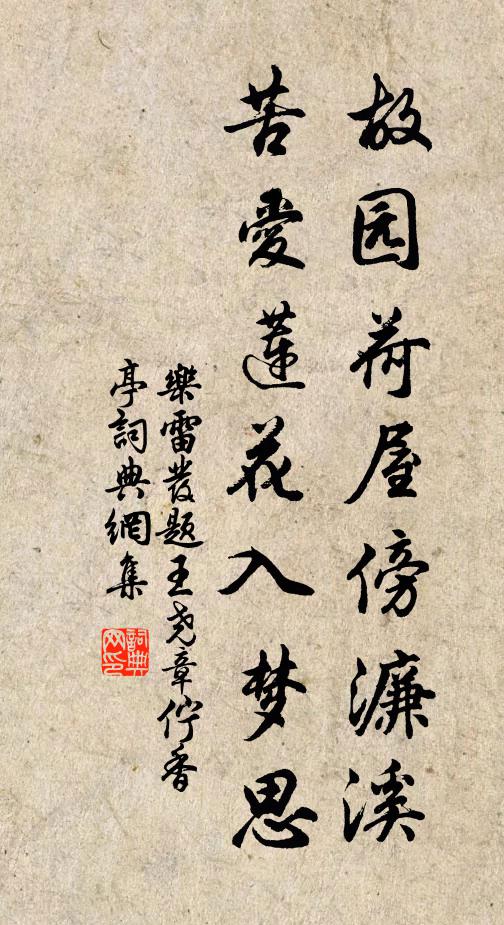 故园荷屋傍濂溪
苦愛蓮花入梦思
樂雷發题王尧章佇香
亭詞典網集
詞典
网印